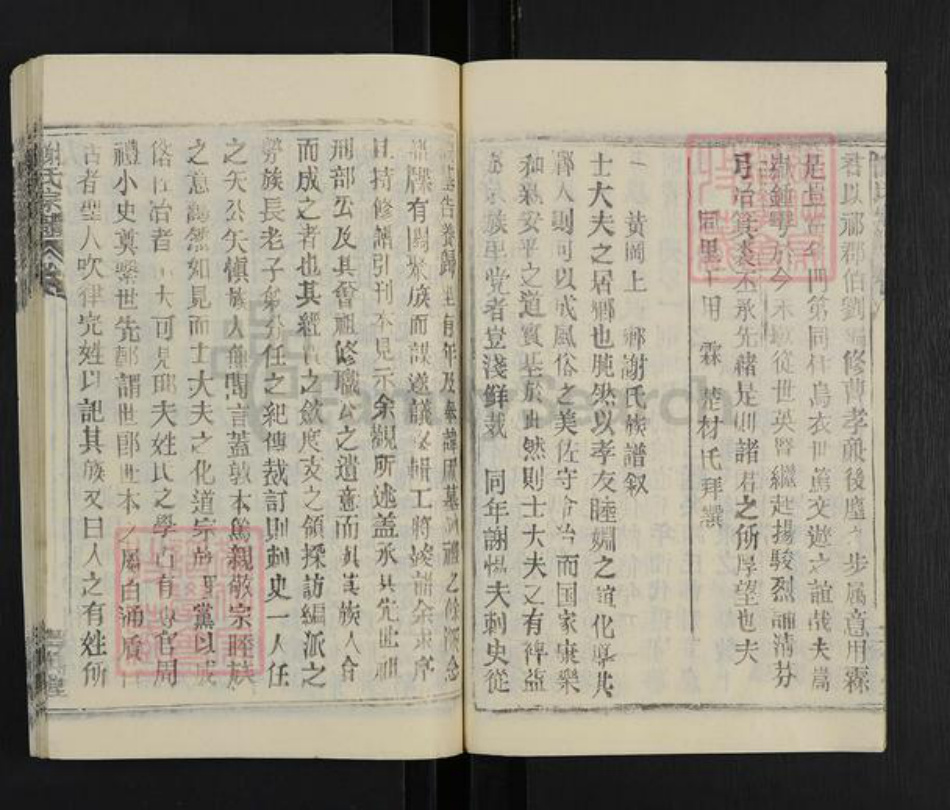 君以鄉郡伯劉 修曹孝廉後塵之步属意用霖
是 門第同 烏衣世篤交遊之誼哉夫嵩
嶽鍾 於今 從世英賢繼起揚駿烈誦清芬
弓冶箕裘丕承先緒是則諸君之所厚望也夫
同里 用霖 楚材氏拜譔
黄岡上 鄉謝氏族譜叙
士大夫之居鄉也脫然以孝友睦婣之誼化導其
鄉人則可以成風俗之美佐守令治而国家康樂
和親安平之道實基於此然則士大夫之有裨益
於宗族鄉黨者豈淺鮮哉 同年謝 夫刺史従
告養歸里有年及 葬 成墓 禮之餘深念
譜牒有關於族而 遂議 輯工將竣請余為序
且持修譜引刊本見示余觀所述蓋承其先世
刑部公及其曾祖修職公之遺意而與其族人合
而成之者也其經費之斂度支之領採訪編派之
勞族長老子弟分任之紀傳裁訂則刺史一人任
之矢公矢慎族人無間言蓋敦本篤親敬宗睦族
之意藹然如見而士大夫之化道宗族鄉黨以成
俗 者 大可見耶夫姓氏之學古有專官周
禮小史奠繫世先鄭謂世即世本之屬自涌
古者聖人吹律定姓以記其族又曰人之有姓所
謝氏宗譜 卷